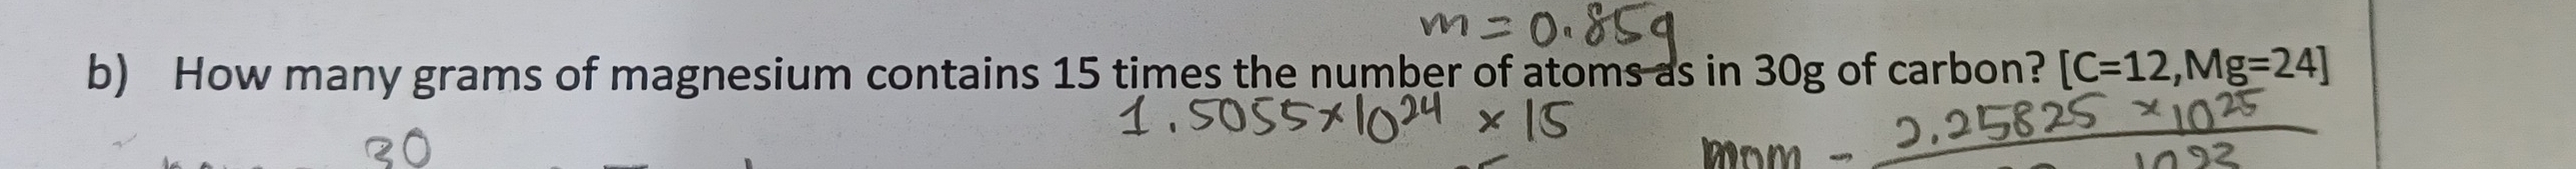 m = 0.85g
b) How many grams of magnesium contains 15 times the number of atoms as in 30g of carbon? [C=12,Mg=24]
1.5055×10²⁴ × 15
2.25825 × 10²⁵
30
mom -
10²³